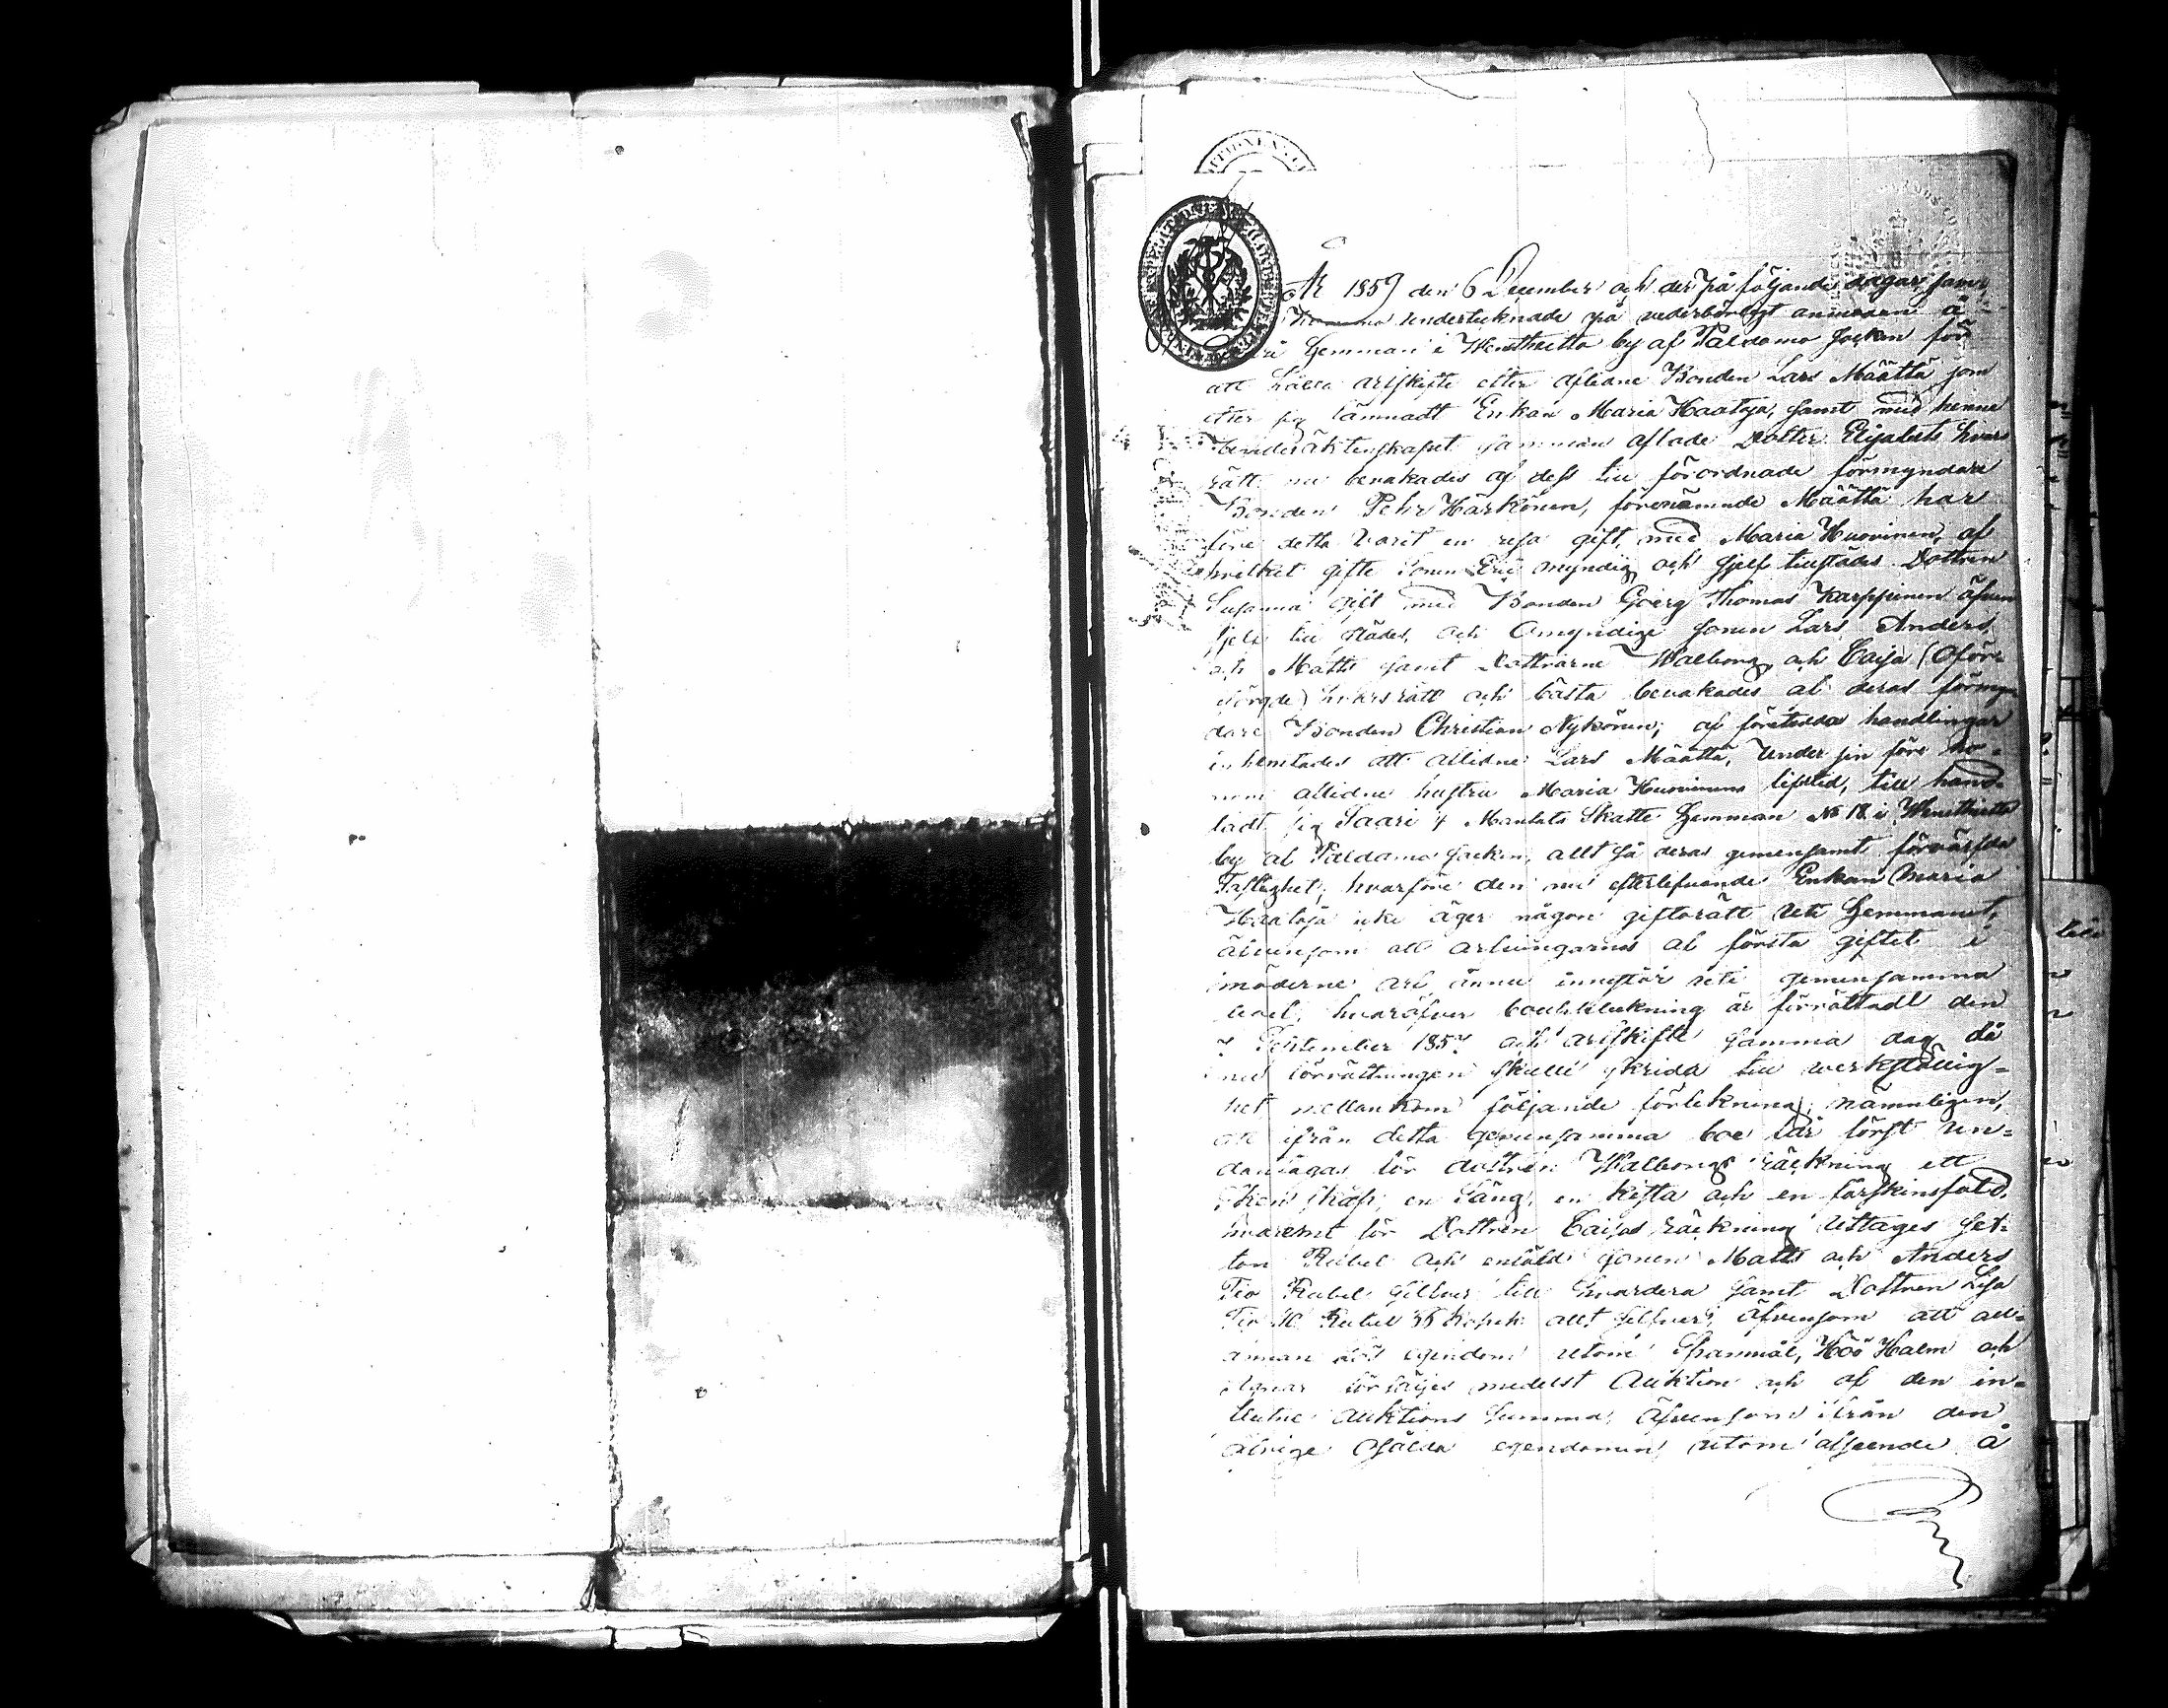 År 1859 den 6 December och derpå följande dagar, sam-
undertecknade på vederbörligt anmodan å
Hemman i by af Paldamo Socken för
att hålla arfskifte efter aflidne Bonden Lars Määttä som
efter sig lämnadt Enkan Maria Haataja, samt med henne
under äktenskapet samman aflade Dotter Elisabets hvars
rätt nu bevakades af dess till förordnade förmyndare
Bonden Pehr Härkönen, förenämnde Määttä har
före detta varit en resa gift med Maria Huovinen, af
hvilket gifte Sonen Eric myndig och sjelf tillstädes Dottren
Susanna gift med Bonden Georg Thomas Karppinen äfven
sjelf till städes, och Omyndige Sonen Lars Anders,
och Matts samt Dottrarne Walborg och Caisa (Oför-
sörgde) hvars rätt och bästa bevakades af deras förmyn
dare Bonden Christian Nykänen; af företedda handlingar
inhemtades att aflidne Lars Määttä, under sin före ho-
nom aflidne hustru Maria Huovinens lifstid, till hand-
ladt sig Saari Mantals Skatte Hemman No 18 i
by af Paldamo Socken, allt så deras gemensamt förvärfda
Fastighet, hvarföre den nu efterlefvande Enkan Maria
Haataja icke äger någon giftorätt uti Hemmanet,
äfvensom att arfvingarnes af första giftet i
möderne arf ännu innestår uti gemensamma
boet, hvaröfver bouppteckning är förrättadt den
7 September 1857 och arfskifte samma dag då
nu förrättningen skulle skrida till werkställig-
het mellankom följande förlikning; nämnligen,
att ifrån detta gemensamma boe får först un-
dantagas för dottren Walborgs räckning ett
en Säng, en kista och en fårskinsfäld,
hvaremt för Dottren Caisas räckning uttages Sex-
ton Rubel och sonen Matts och Anders
Tio Rubel Silfver till hvardera samt Dottren Lisa
Tio 10 Rubel 55 kopek allt Silfver; äfvensom att all
annan lös egendom utom Spanmål, Höö Halm och
försäljes medelst Auktion och af den in-
flutne Auktions Summa, äfvensom ifrån den
öfrige osålda egendomen, utom afseende å